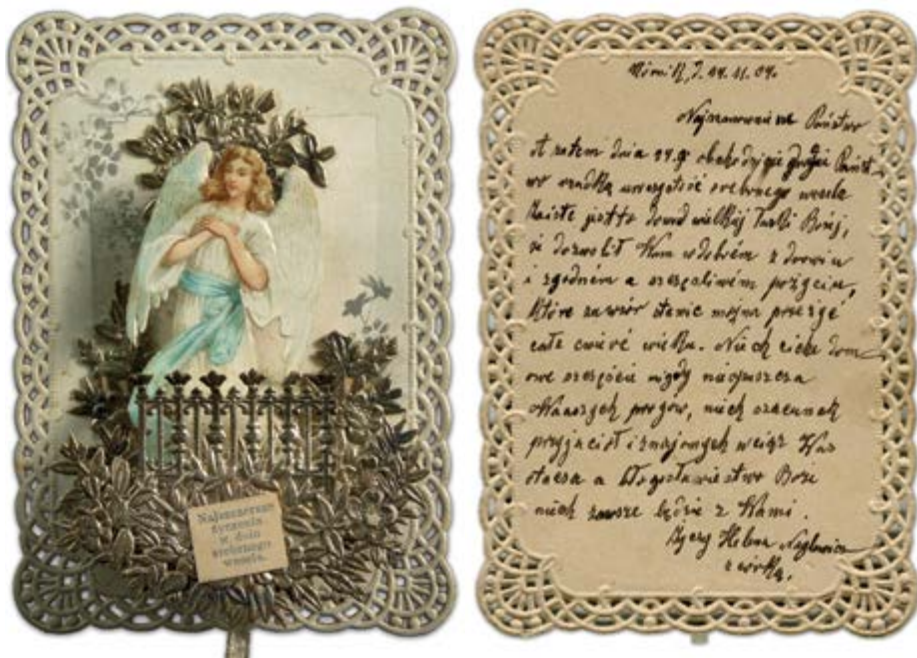 Najszczersze
życzenia
w dniu
srebrnego
wesela.
d. 24.11.04.
Najszanowniejsi Państwo
A zatem dnia 24.g obchodzicie drodzy Państ
wo rzadką uroczystość srebrnego wesela
Zaiste jest to dowód wielkiej Łaski Bożej,
że dozwolił Wam w dobrém zdrowiu
i zgodném a szczęśliwém pożyciu,
które za wzór stawić można przeżyć
całe ćwierć wieku. Niech ciche dom
owe szczęście nigdy nieopuszcza
Waszych progów, niech szacunek
przyjaciół i znajomych wciąż Was
otacza a błogosławieństwo Boże
niech zawsze będzie z Wami.
Helena
z córką.